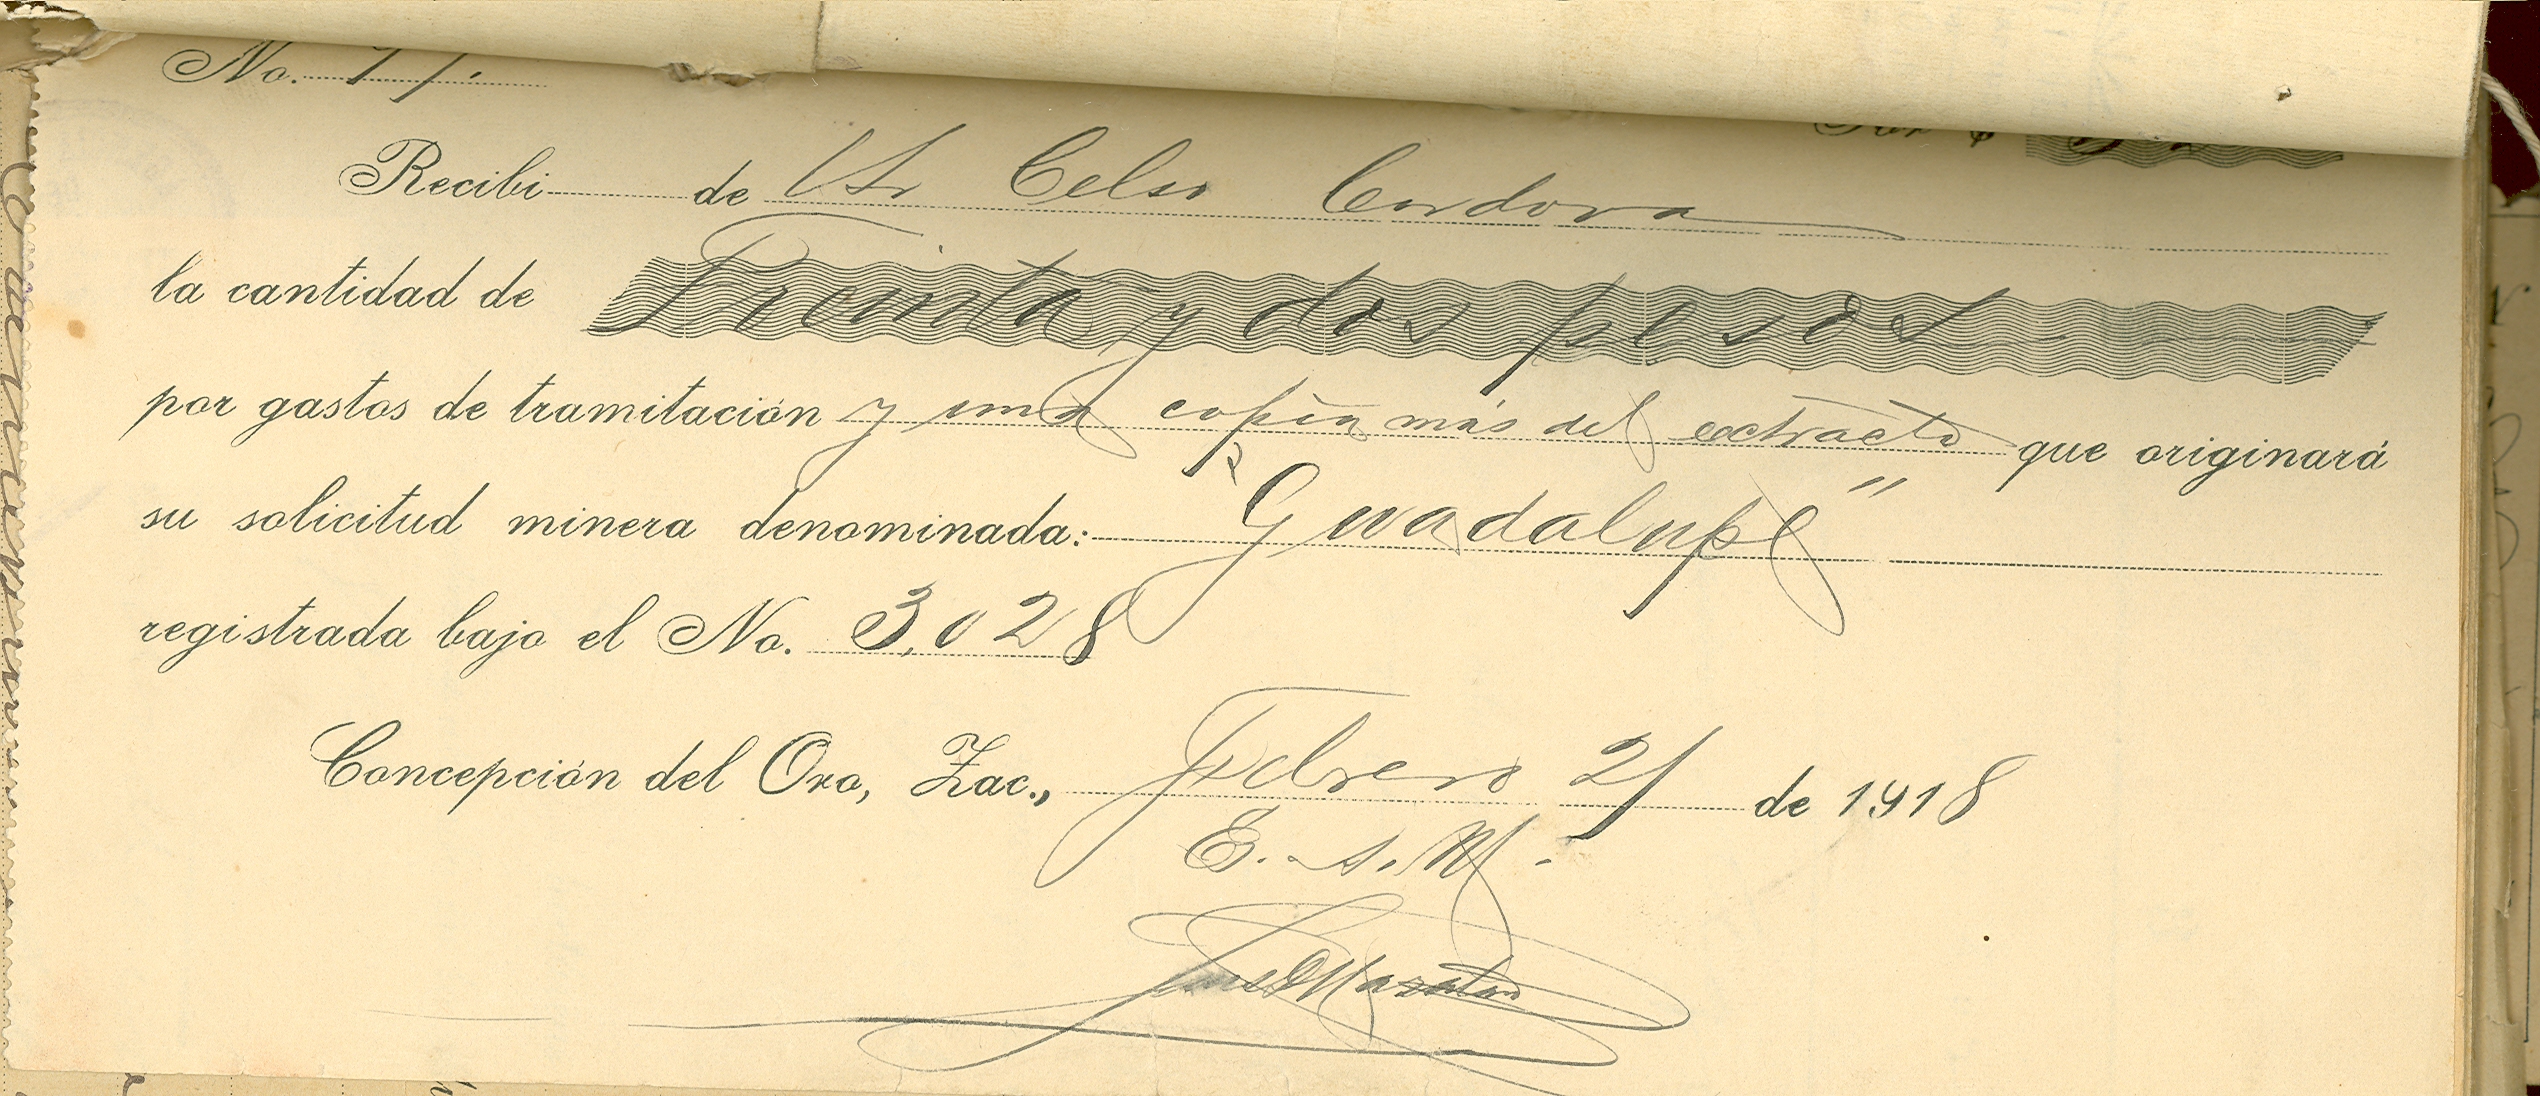 No.
Recibí de Sr Celso Cordova
la cantidad de Treinta y dos pesos
por gastos de tramitación y una copia más del extracto que originará
su solicitud minera denominada: "Guadalupe"
registrada bajo el No. 3,028
Concepción del Oro, Zac., Febrero 21 de 1918
E. A. M.